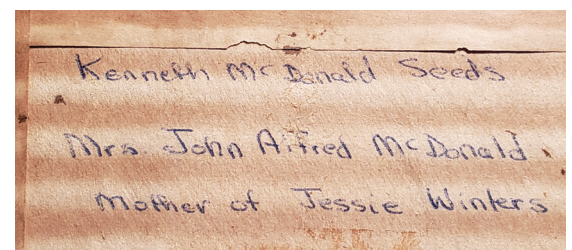 Kenneth McDonald Seeds
Mrs. John Alfred McDonald
Mother of Jessie Winters